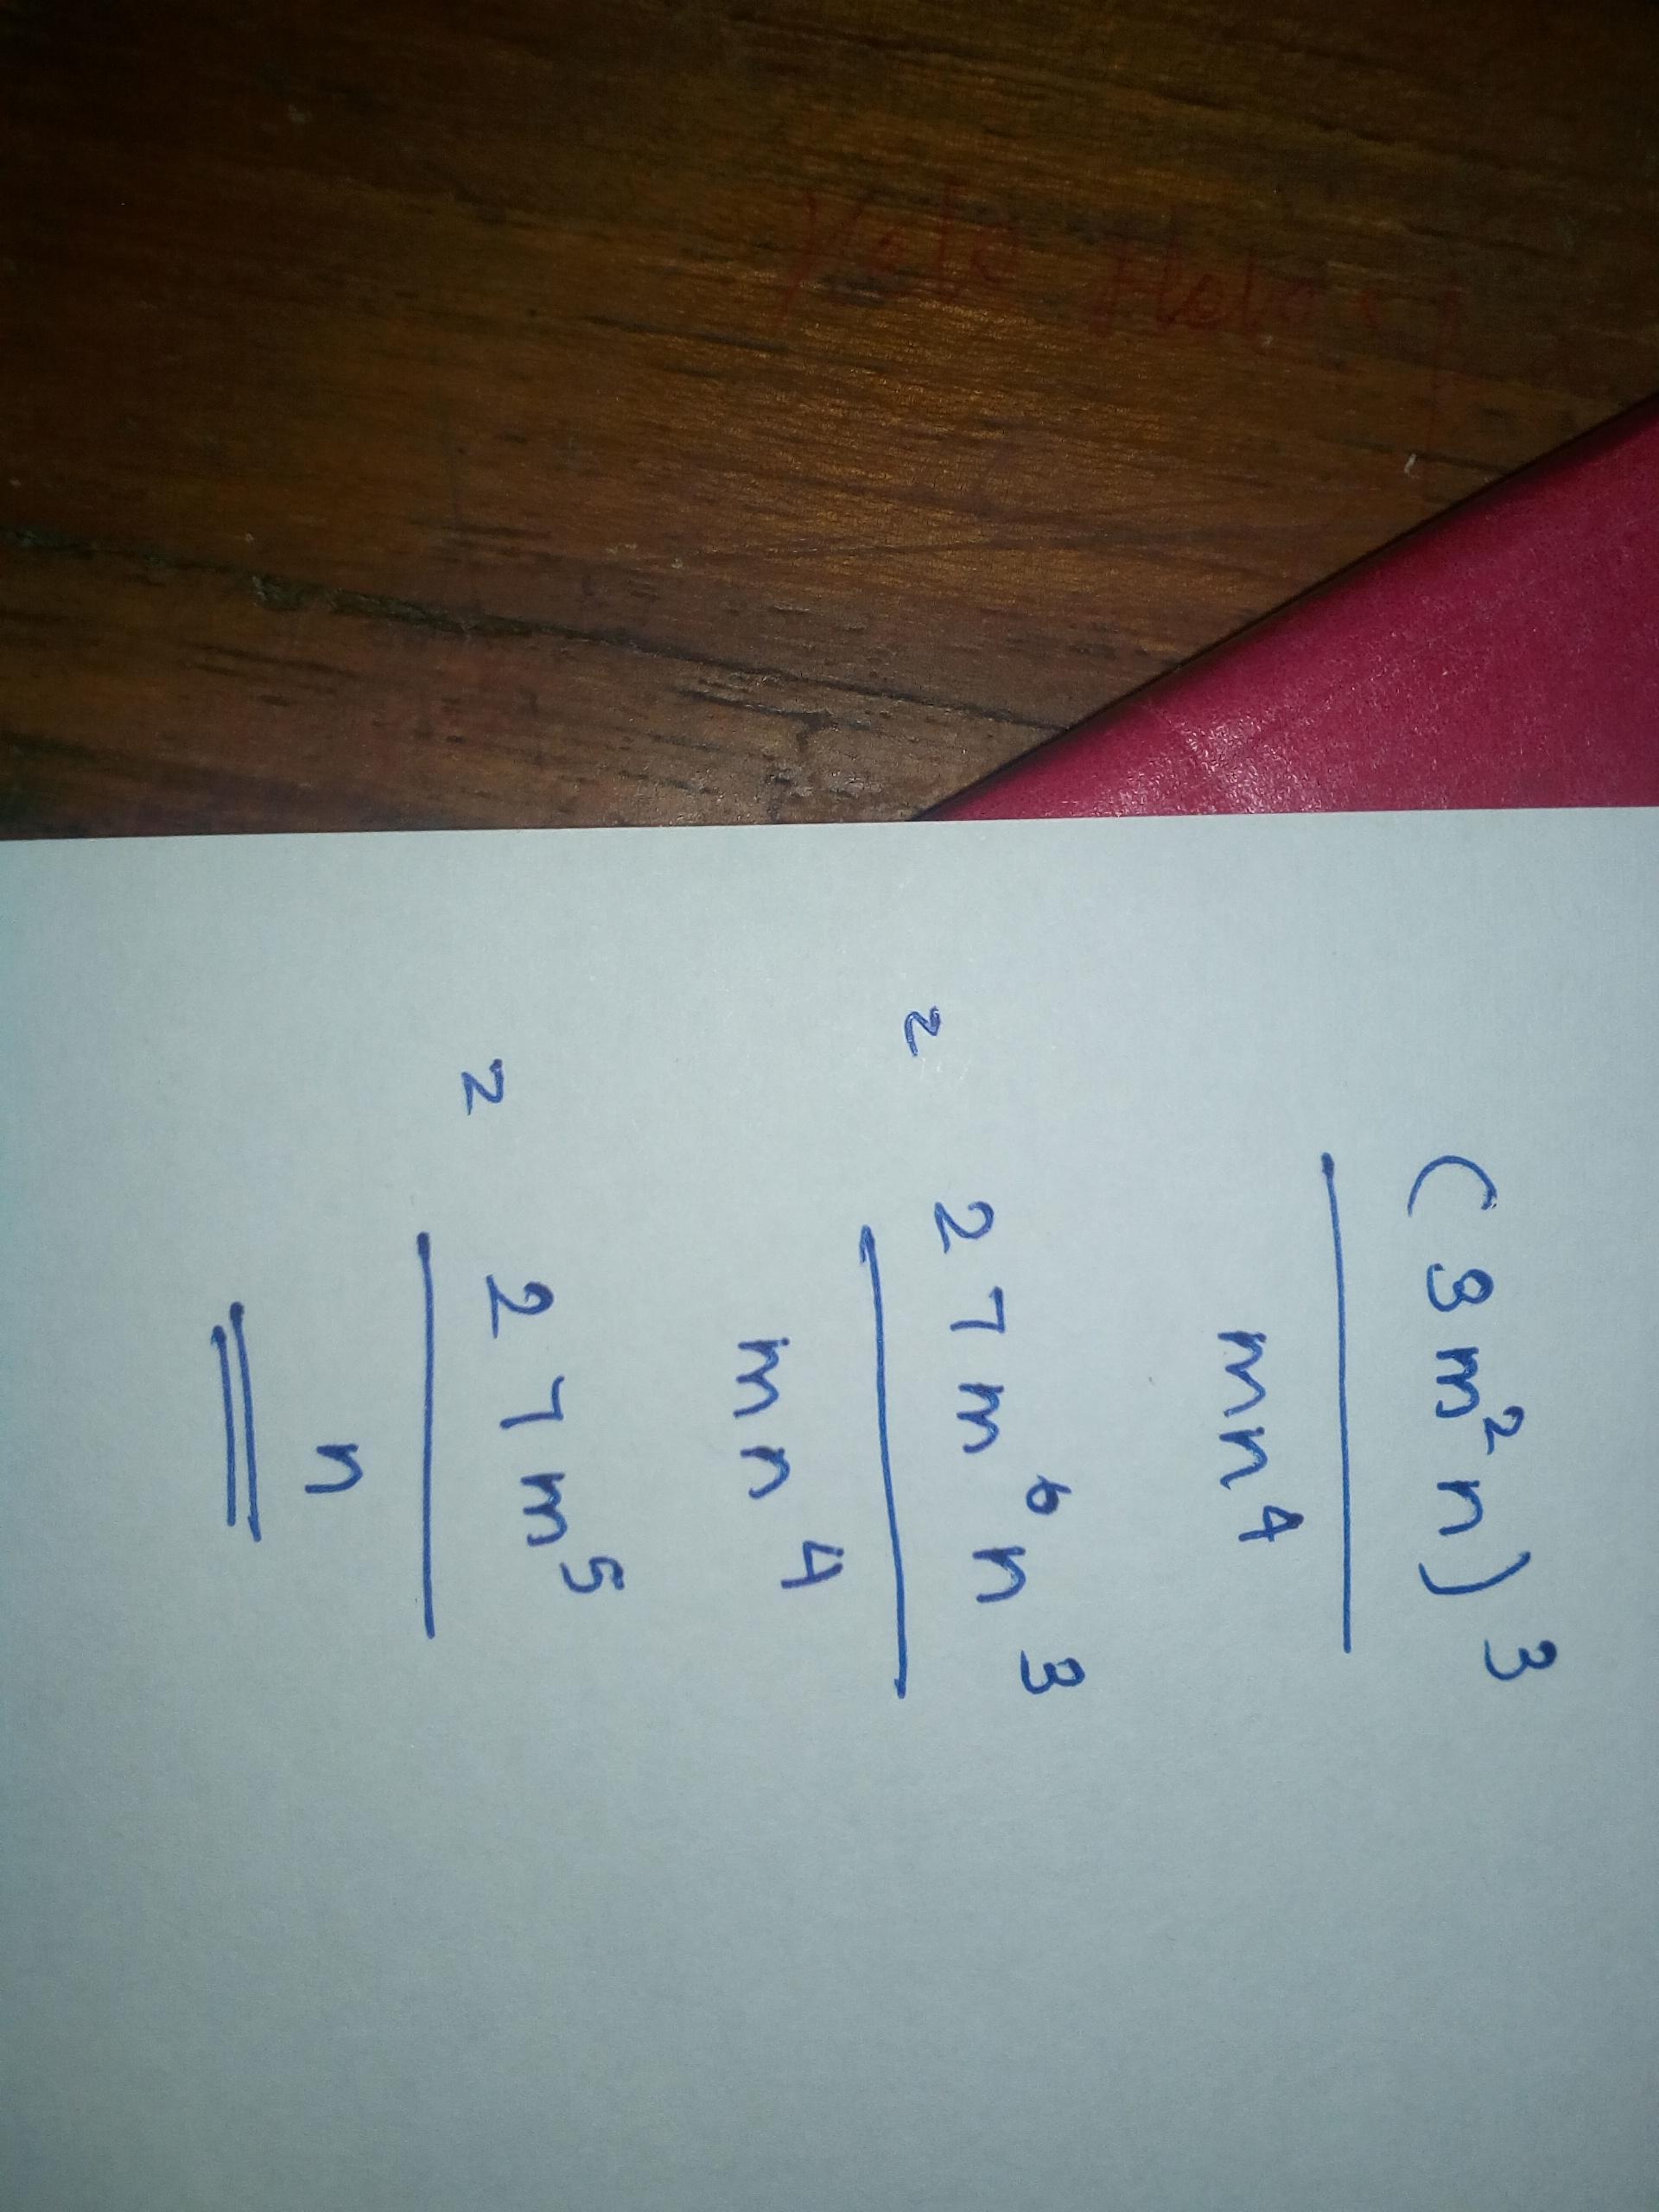 (3m²n)³
mn⁴
= 27m⁶n³
mn⁴
= 27m⁵
n